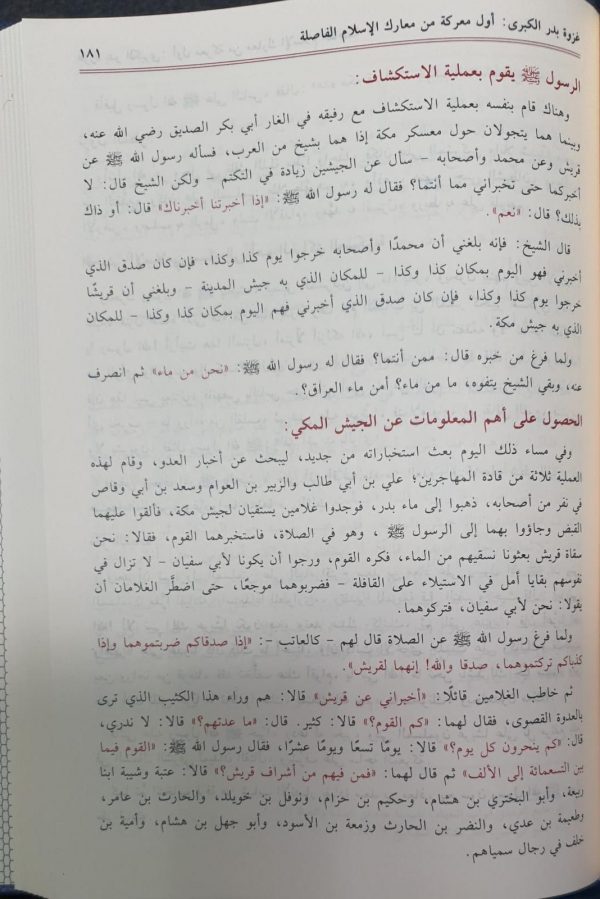 غزوة بدر الكبرى: أول معركة من معارك الإسلام الفاصلة ١٨١
الرسول ﷺ يقوم بعملية الاستكشاف:
وهناك قام بنفسه بعملية الاستكشاف مع رفيقه في الغار أبي بكر الصديق رضي الله عنه،
وبينما هما يتجولان حول معسكر مكة إذا هما بشيخ من العرب، فسأله رسول الله ﷺ عن
قريش وعن محمد وأصحابه – سأل عن الجيشين زيادة في التكتم – ولكن الشيخ قال: لا
أخبركما حتى تخبراني مما أنتما؟ فقال له رسول الله ﷺ: «إذا أخبرتنا أخبرناك» قال: أو ذاك
بذلك؟ قال: «نعم».
قال الشيخ: فإنه بلغني أن محمدًا وأصحابه خرجوا يوم كذا وكذا، فإن كان صدق الذي
أخبرني فهو اليوم بمكان كذا وكذا – للمكان الذي به جيش المدينة – وبلغني أن قريشًا
خرجوا يوم كذا وكذا، فإن كان صدق الذي أخبرني فهم اليوم بمكان كذا وكذا – للمكان
الذي به جيش مكة.
ولما فرغ من خبره قال: ممن أنتما؟ فقال له رسول الله ﷺ: «نحن من ماء» ثم انصرف
عنه، وبقي الشيخ يتفوه، ما من ماء؟ أمن ماء العراق؟.
الحصول على أهم المعلومات عن الجيش المكي:
وفي مساء ذلك اليوم بعث استخباراته من جديد، ليبحث عن أخبار العدو، وقام لهذه
العملية ثلاثة من قادة المهاجرين؛ علي بن أبي طالب والزبير بن العوام وسعد بن أبي وقاص
في نفر من أصحابه، ذهبوا إلى ماء بدر، فوجدوا غلامين يستقيان لجيش مكة، فألقوا عليهما
القبض وجاؤوا بهما إلى الرسول ﷺ ، وهو في الصلاة، فاستخبرهما القوم، فقالا: نحن
سقاة قريش بعثونا نسقيهم من الماء، فكره القوم، ورجوا أن يكونا لأبي سفيان – لا تزال في
نفوسهم بقايا أمل في الاستيلاء على القافلة – فضربوهما موجعًا، حتى اضطَّر الغلامان أن
يقولا: نحن لأبي سفيان، فتركوهما.
ولما فرغ رسول الله ﷺ عن الصلاة قال لهم – كالعاتب –: «إذا صدقاكم ضربتموهما وإذا
كذباكم تركتموهما، صدقا والله! إنهما لقريش».
ثم خاطب الغلامين قائلًا: «أخبراني عن قريش» قالا: هم وراء هذا الكثيب الذي ترى
بالعدوة القصوى، فقال لهما: «كم القوم؟» قالا: كثير. قال: «ما عدتهم؟» قالا: لا ندري،
قال: «كم ينحرون كل يوم؟» قالا: يومًا تسعًا ويومًا عشرًا، فقال رسول الله ﷺ: «القوم فيما
بين التسعمائة إلى الألف» ثم قال لهما: «فمن فيهم من أشراف قريش؟» قالا: عتبة وشيبة ابنا
ربيعة، وأبو البختري بن هشام، وحكيم بن حزام، ونوفل بن خويلد، والحارث بن عامر،
وطعيمة بن عدي، والنضر بن الحارث وزمعة بن الأسود، وأبو جهل بن هشام، وأمية بن
خلف في رجال سمياهم.